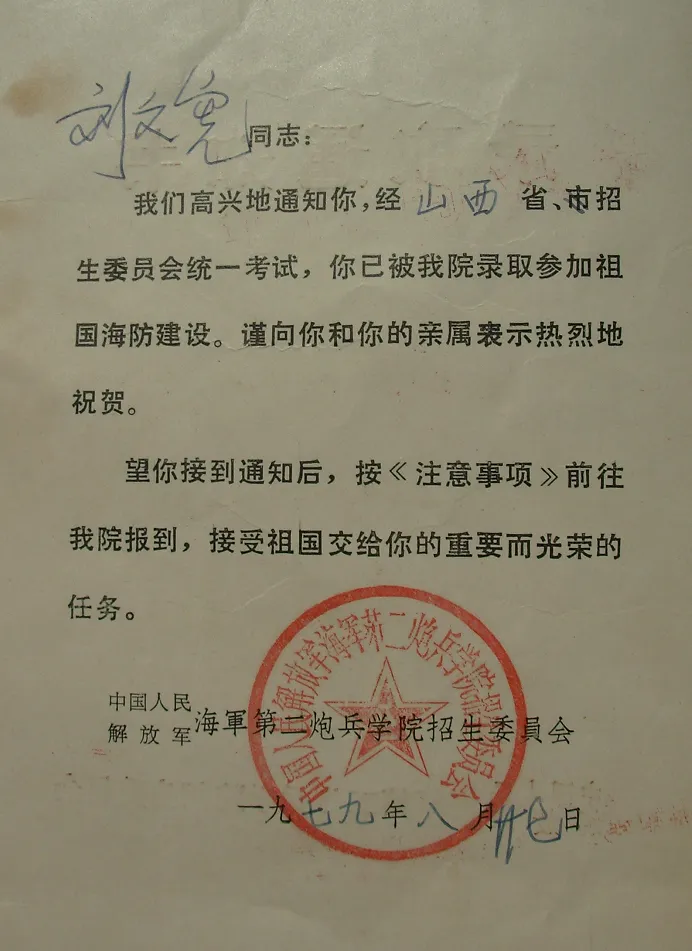 刘文尧同志：
我们高兴地通知你，经山西省、市招
生委员会统一考试，你已被我院录取参加祖
国海防建设。谨向你和你的亲属表示热烈地
祝贺。
望你接到通知后，按《注意事项》前往
我院报到，接受祖国交给你的重要而光荣的
任务。
中国人民
解放军海軍第二炮兵学院招生委員会
中国人民解放军海军第二炮兵学院招生委员会
一九七九年八月廿七日